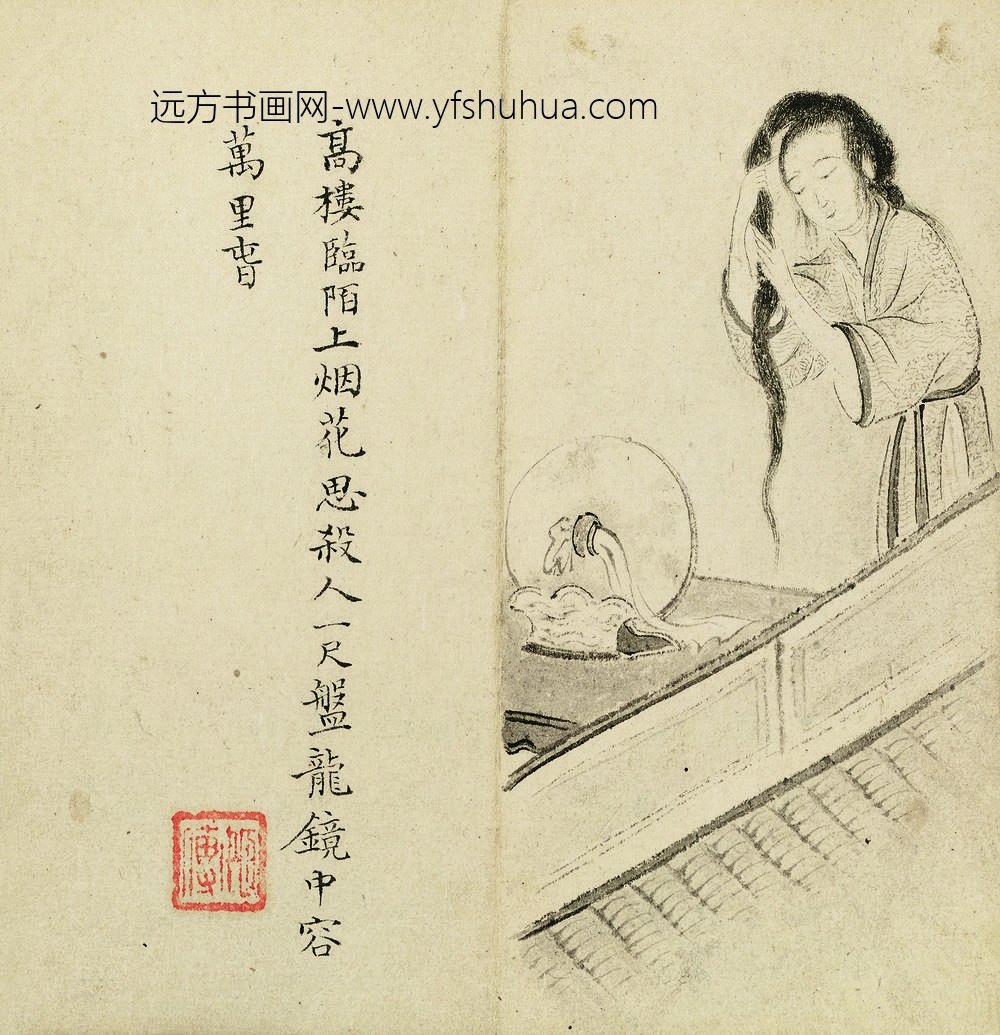 远方书画网-www.yfshuhua.com
髙樓臨陌上烟花思殺人一尺盤龍鏡中容
萬里旾